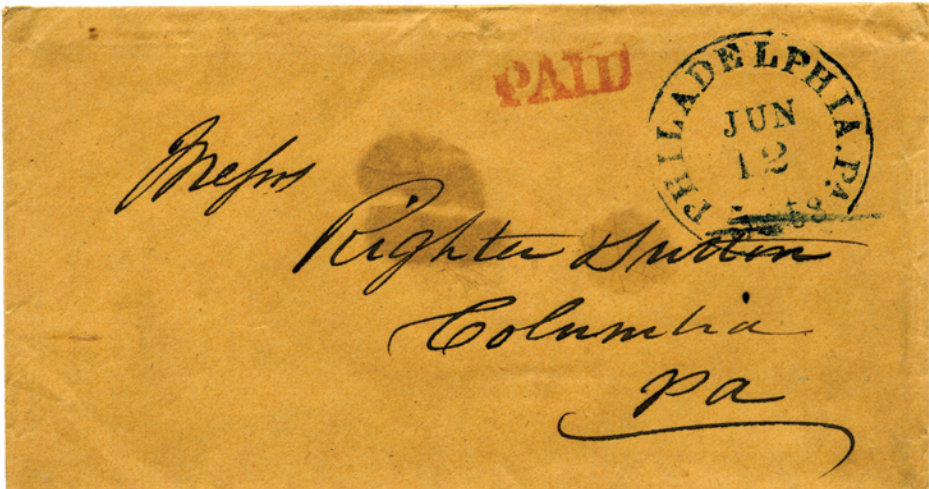 PAID
PHILADELPHIA.PA.
JUN
12
Messrs
Righter Sutton
Columbia
Pa